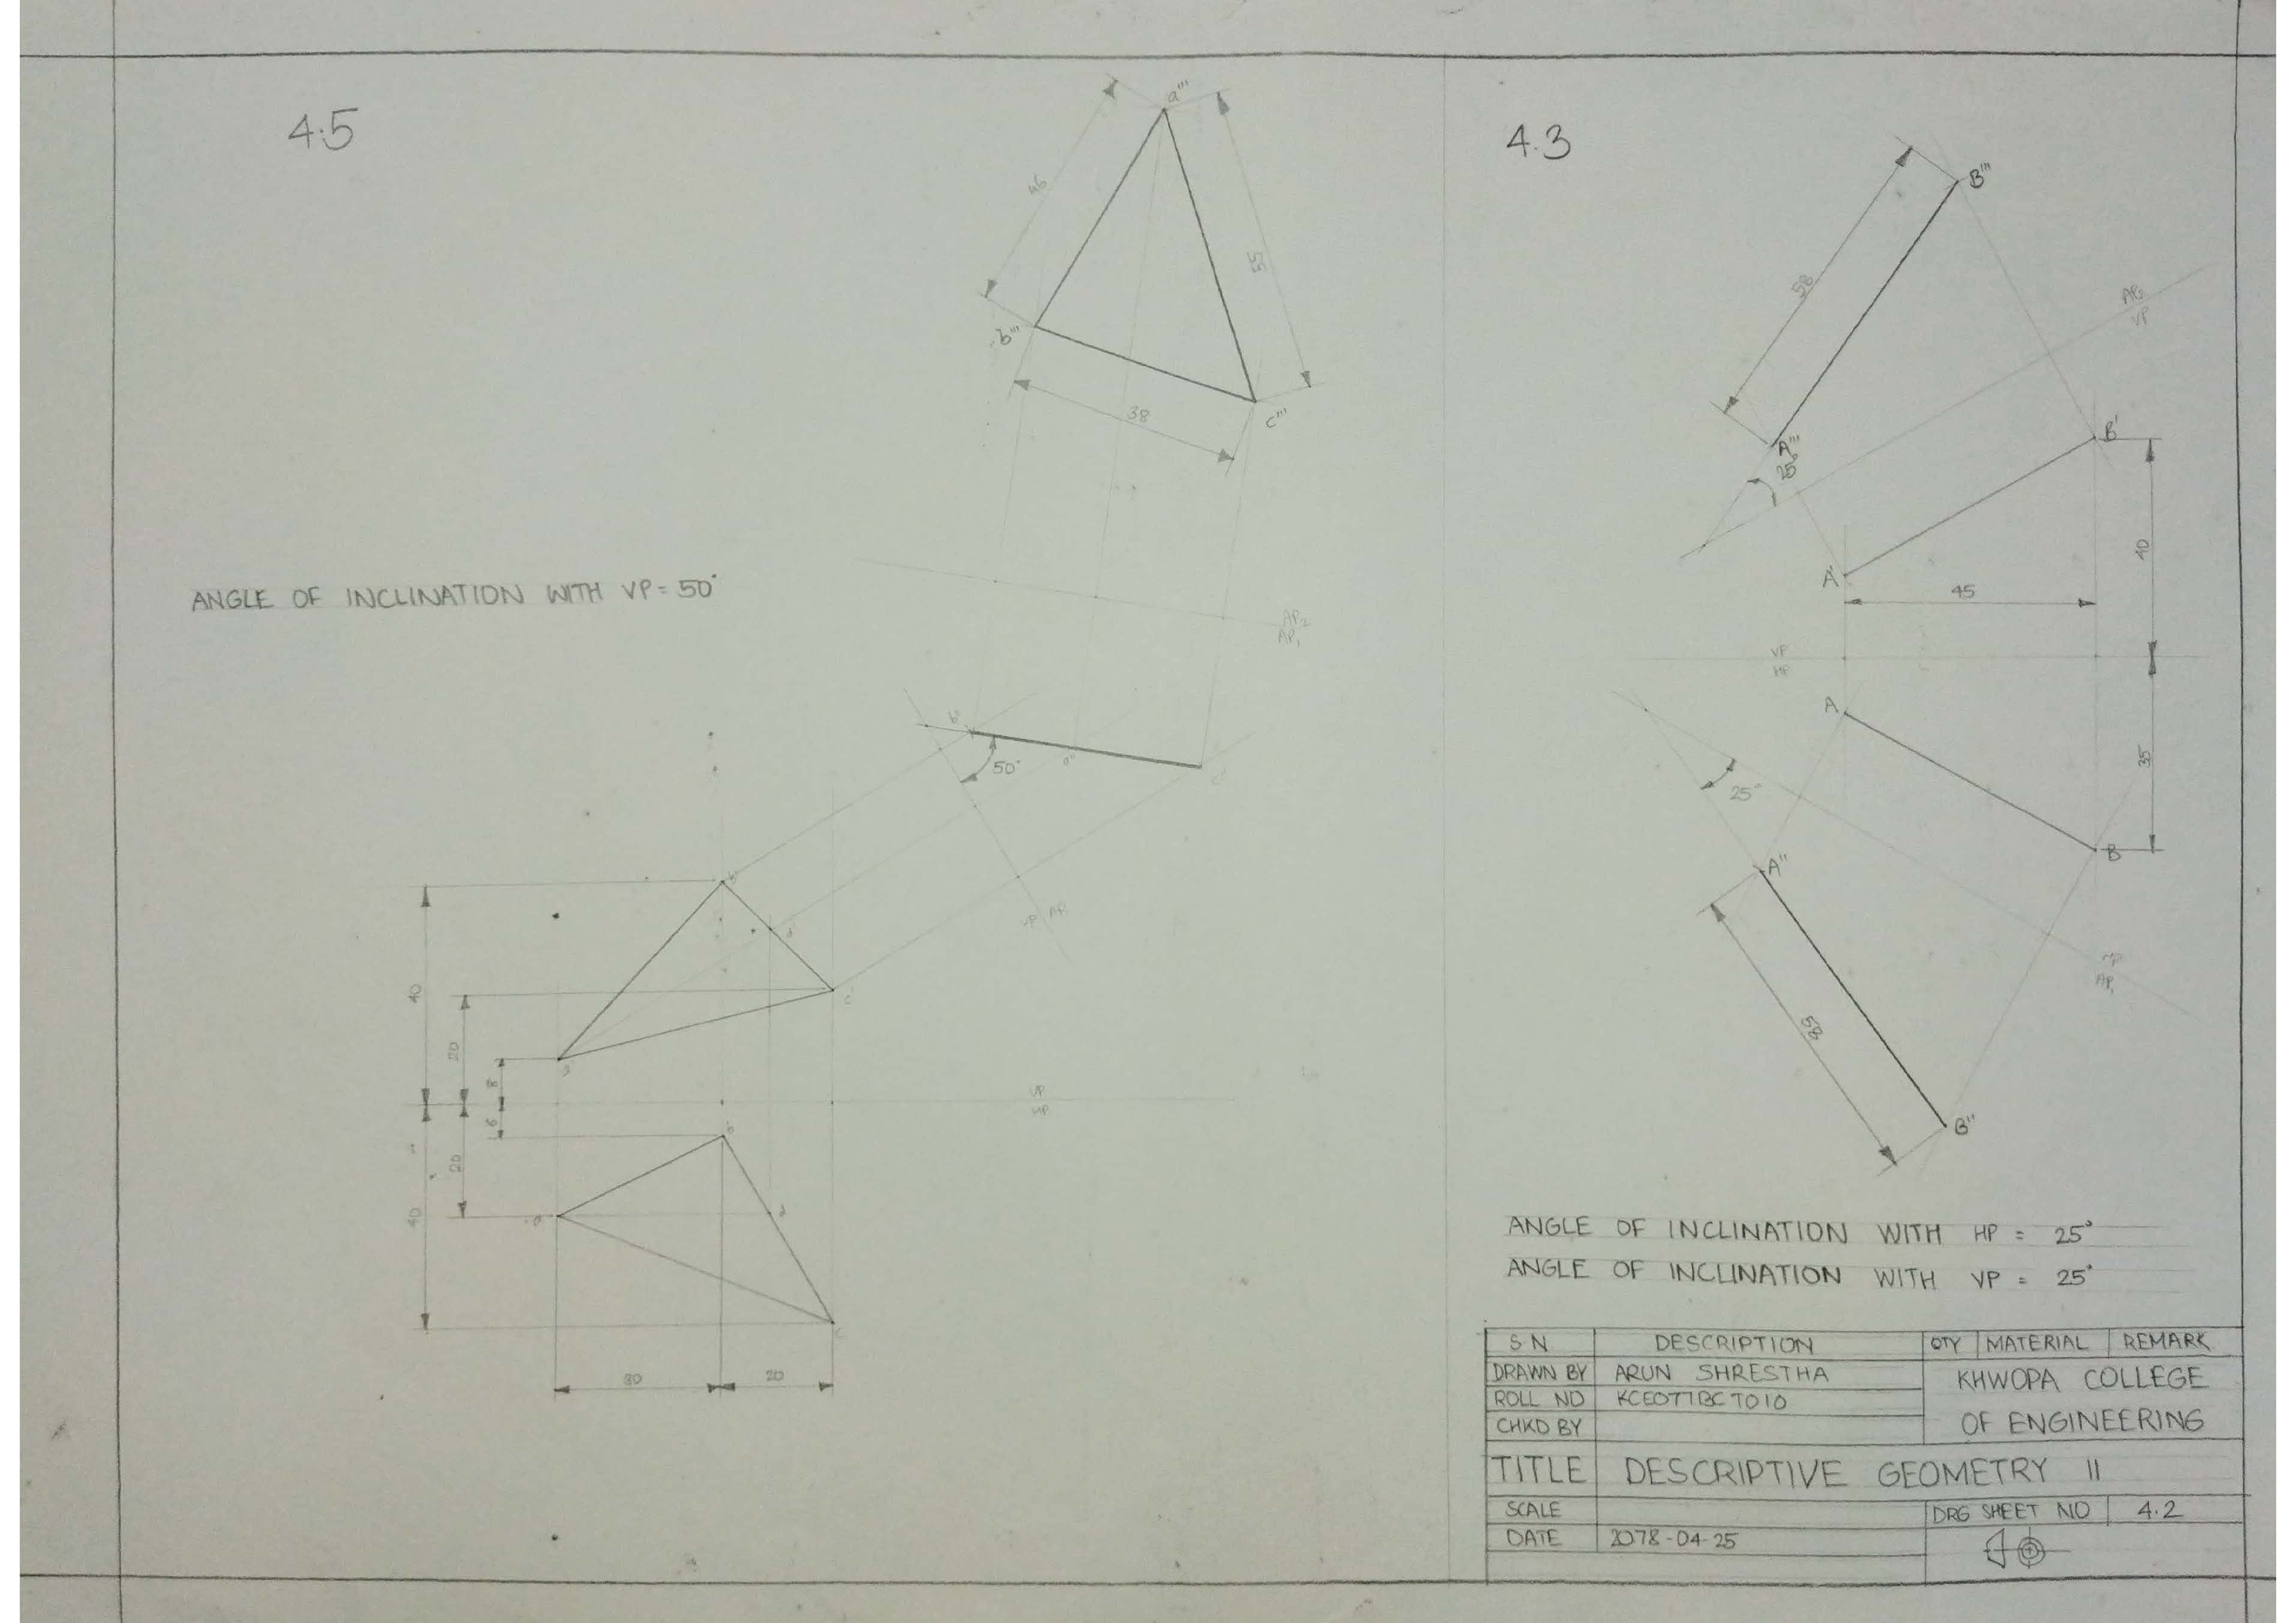 4.5
a'''
46
55
b'''
38
c'''
AP₂
AP₁
ANGLE OF INCLINATION WITH VP = 50°
50°
VP AP₁
b'
c'
40
20
8
VP
HP
6
20
40
a
d
c
30
20
4.3
B'''
58
VP
A'''
25°
B'
A'
45
40
VP
HP
A
35
25°
B
A''
AP₁
58
B''
ANGLE OF INCLINATION WITH HP = 25°
ANGLE OF INCLINATION WITH VP = 25°
SN DESCRIPTION QTY MATERIAL REMARK
DRAWN BY ARUN SHRESTHA KHWOPA COLLEGE
ROLL NO KCE077BCT010
CHKD BY OF ENGINEERING
TITLE DESCRIPTIVE GEOMETRY II
SCALE DRG SHEET NO 4.2
DATE 2078-04-25